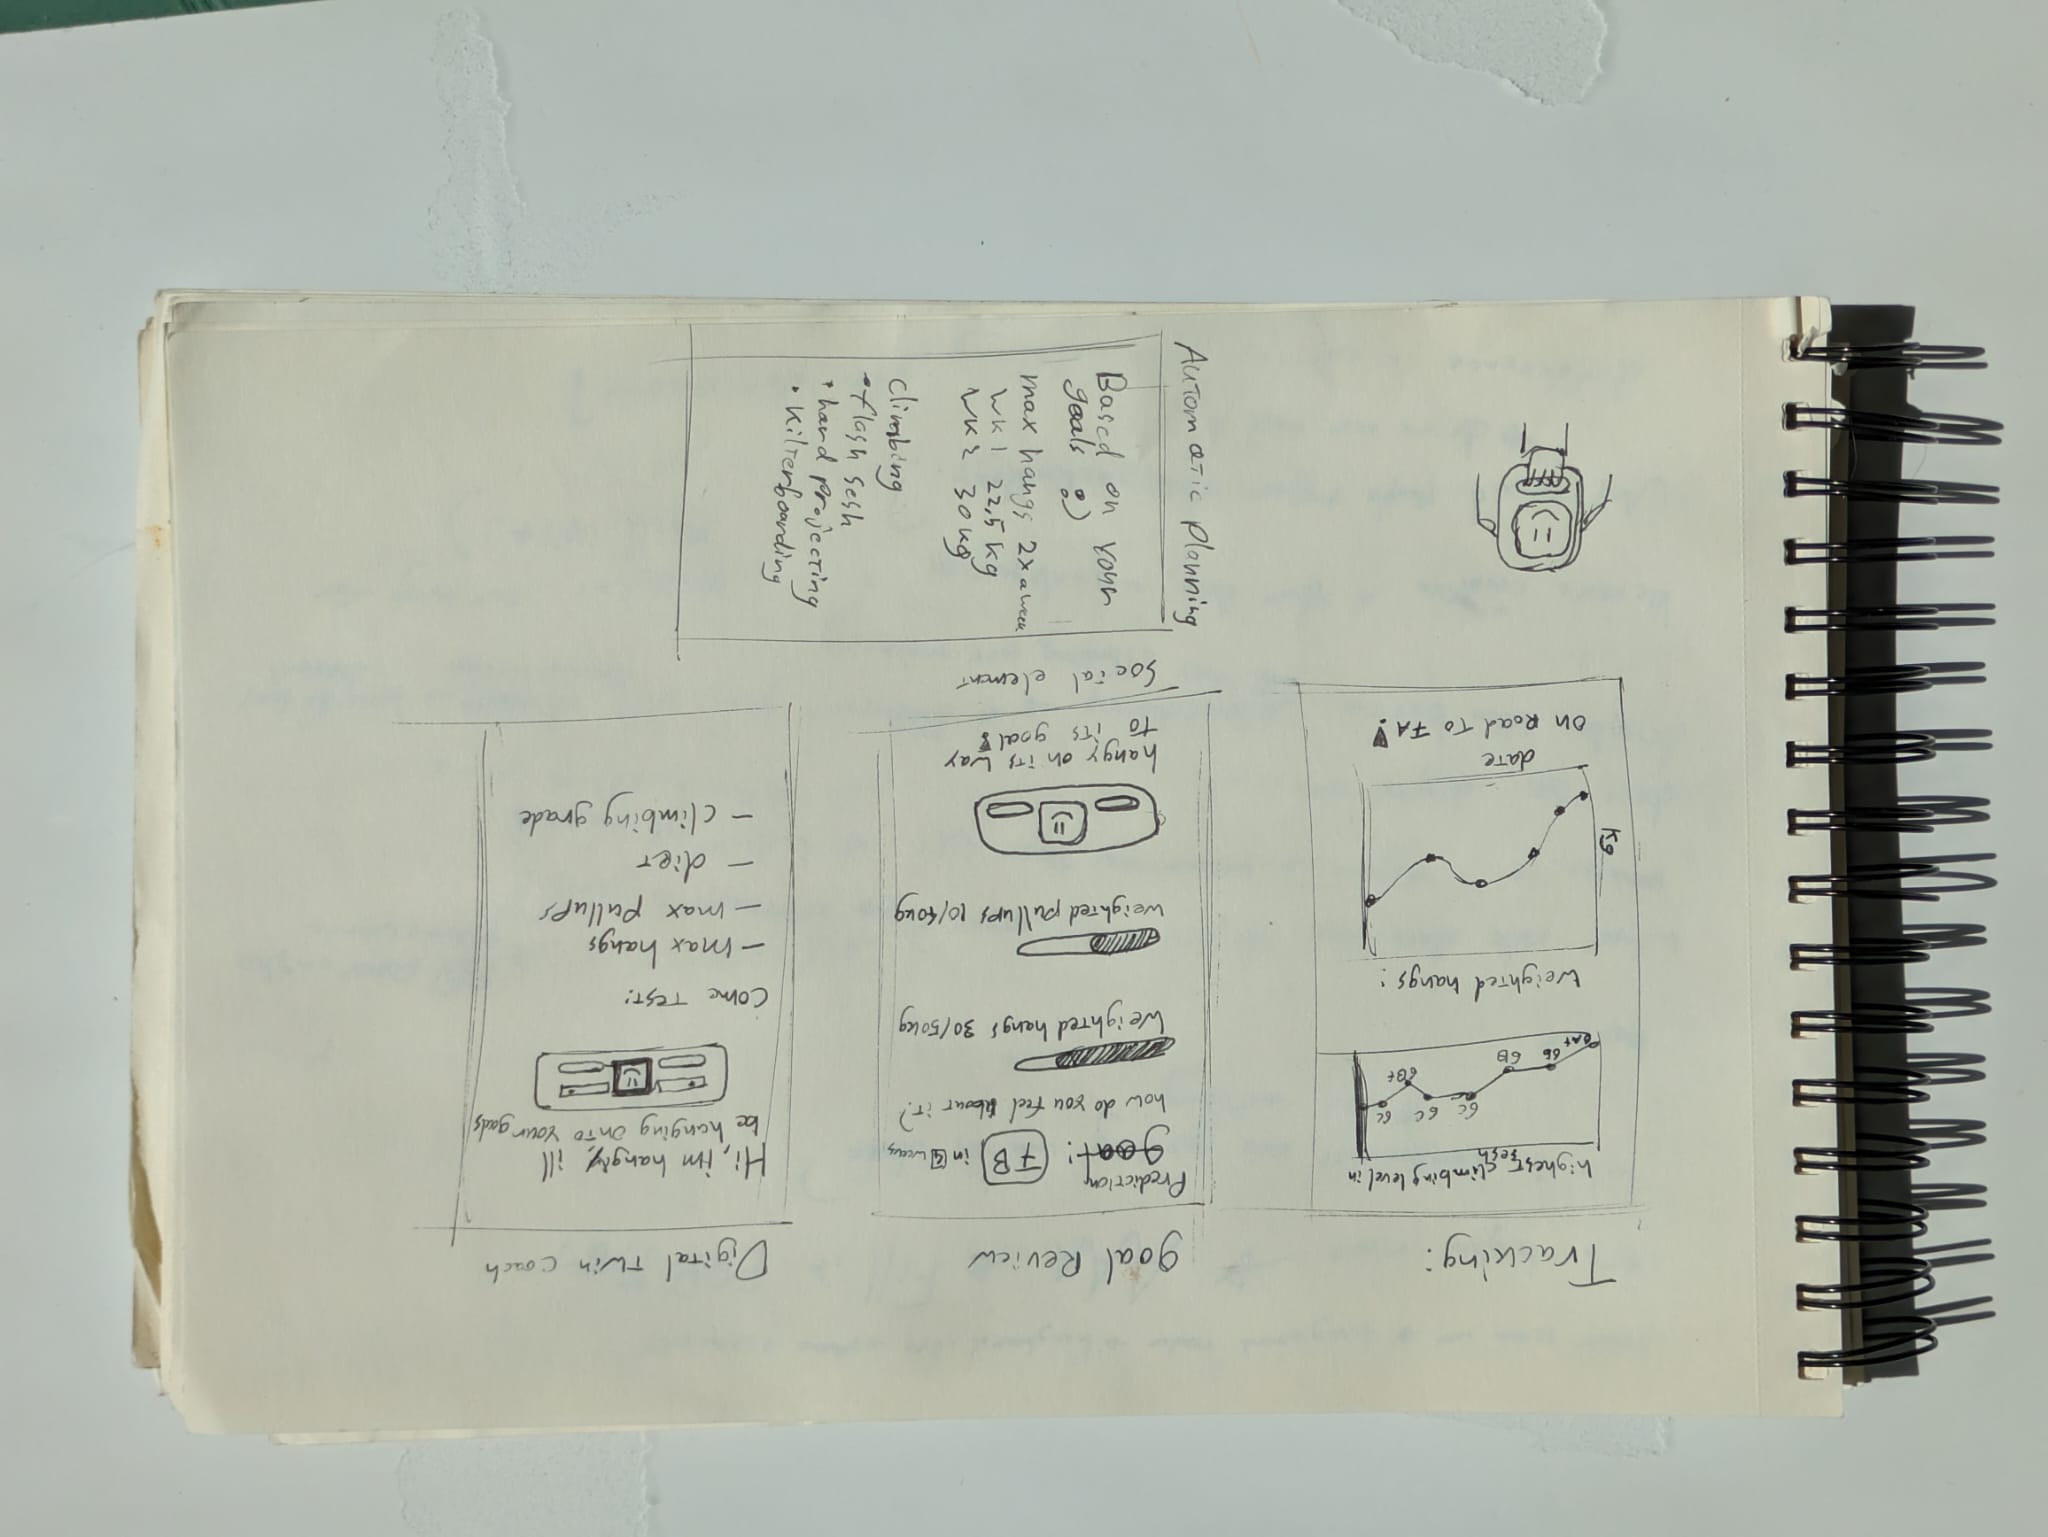 Tracking:
highest climbing level in
sesh
6A+
6B
6B
6C
6C
6B+
6C
Weighted hangs:
Kg
date
On Road To 7A!
Goal Review
Prediction
goal!
7B
in
weeks
how do you feel about it?
Weighted hangs 30/50kg
Weighted pullups 10/40kg
hangy on its way
to its goal!
Social element
Digital Twin Coach
Hi, i'm hangy, ill
be hanging onto your goals
Come Test:
- max hangs
- max pullups
- diet
- climbing grade
Automatic planning
Based on your
goals :)
max hangs 2x a week
wk 1 22,5 kg
wk 2 30 kg
Climbing
• flash sesh
• hard projecting
• Kilterboarding